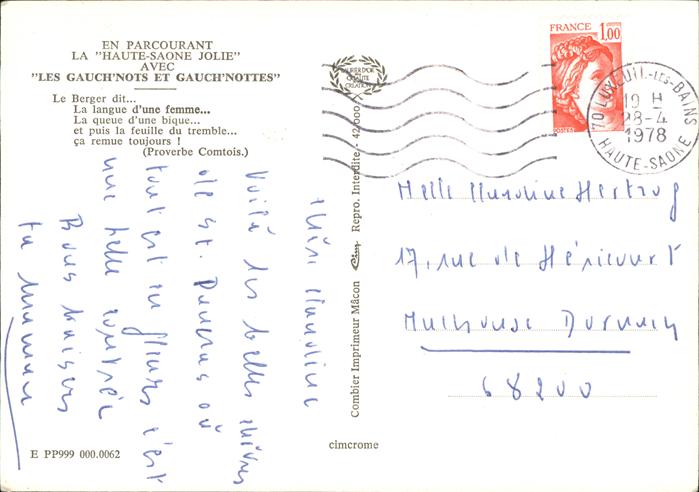 EN PARCOURANT
LA "HAUTE-SAONE JOLIE"
AVEC
"LES GAUCH'NOTS ET GAUCH'NOTTES"
Le Berger dit...
La langue d'une femme...
La queue d'une bique...
et puis la feuille du tremble...
ça remue toujours !
(Proverbe Comtois.)
Voilà les belles chèvres
de St. où
tout est en fleurs c'est
une belle contrée
Bons baisers
ta maman
E PP999 000.0062
cimcrome
Combier Imprimeur Mâcon Cim Repro. Interdite - 42.000
FRANCE 1,00
POSTES
70 LUXEUIL-LES-BAINS
19 H
28-4
1978
HAUTE-SAONE
Melle Hertzog
17, rue de Héricourt
Mulhouse Dornach
68200